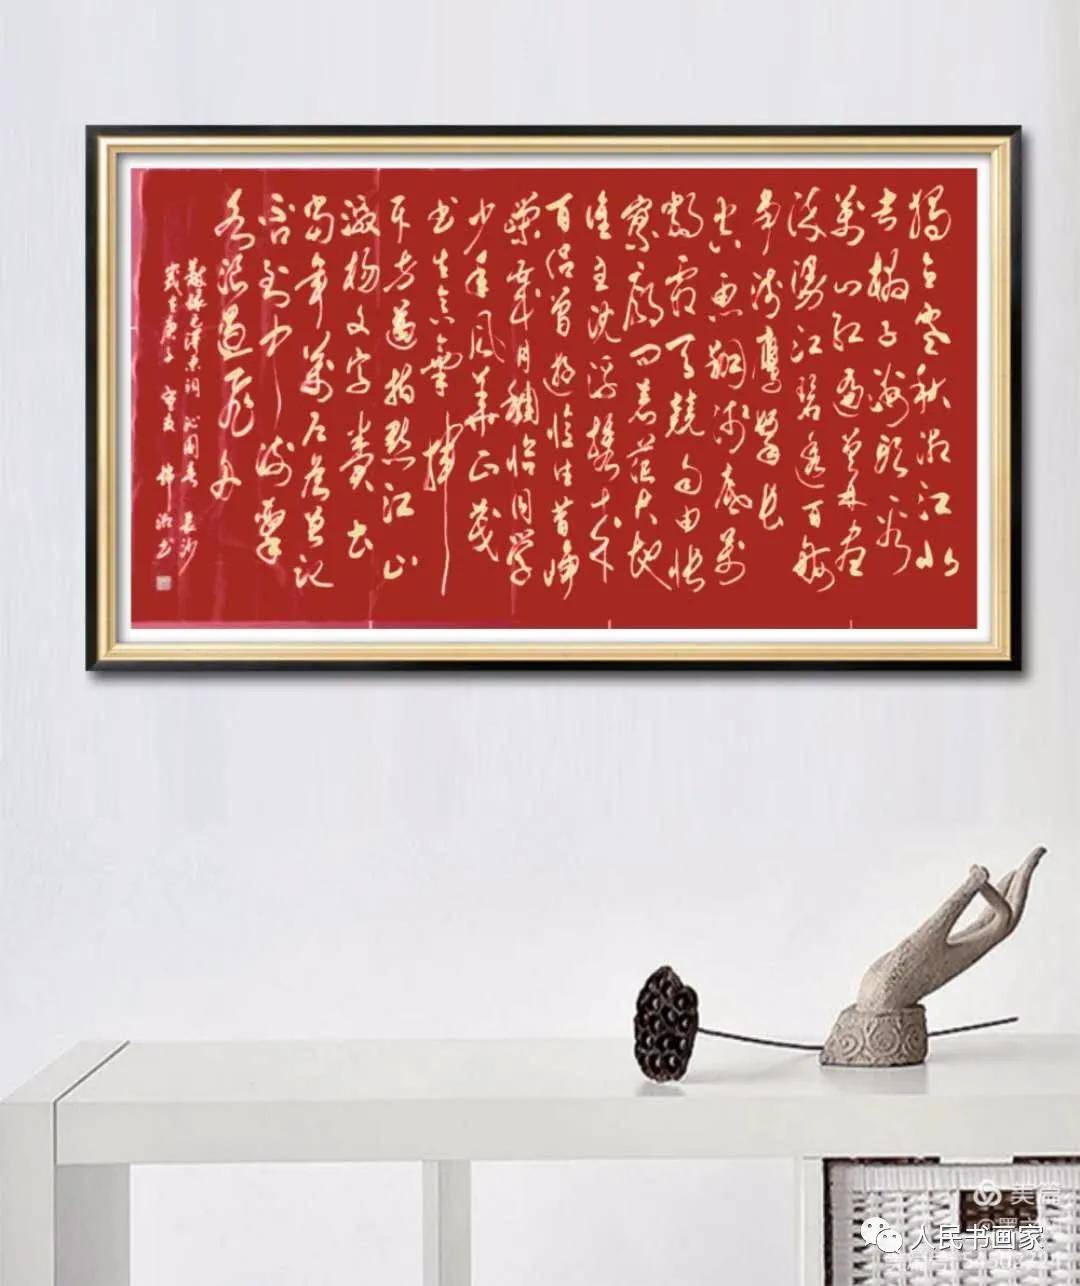 獨立寒秋湘江北
去橘子洲头看
萬山红遍层林尽
染漫江碧透百舸
争流鹰擊长
空鱼翔浅底萬
類霜天競自由怅
寥廓问苍茫大地
谁主沈浮携来
百侣曾游忆往昔峥
嵘岁月稠恰同学
少年风华正茂
书生意氣挥
斥方遒指點江山
激扬文字粪土
当年萬户侯曾记
否到中流擊
水浪遏飞舟
毛泽东词 沁园春 长沙
歲在庚子
美篇
人民书画家